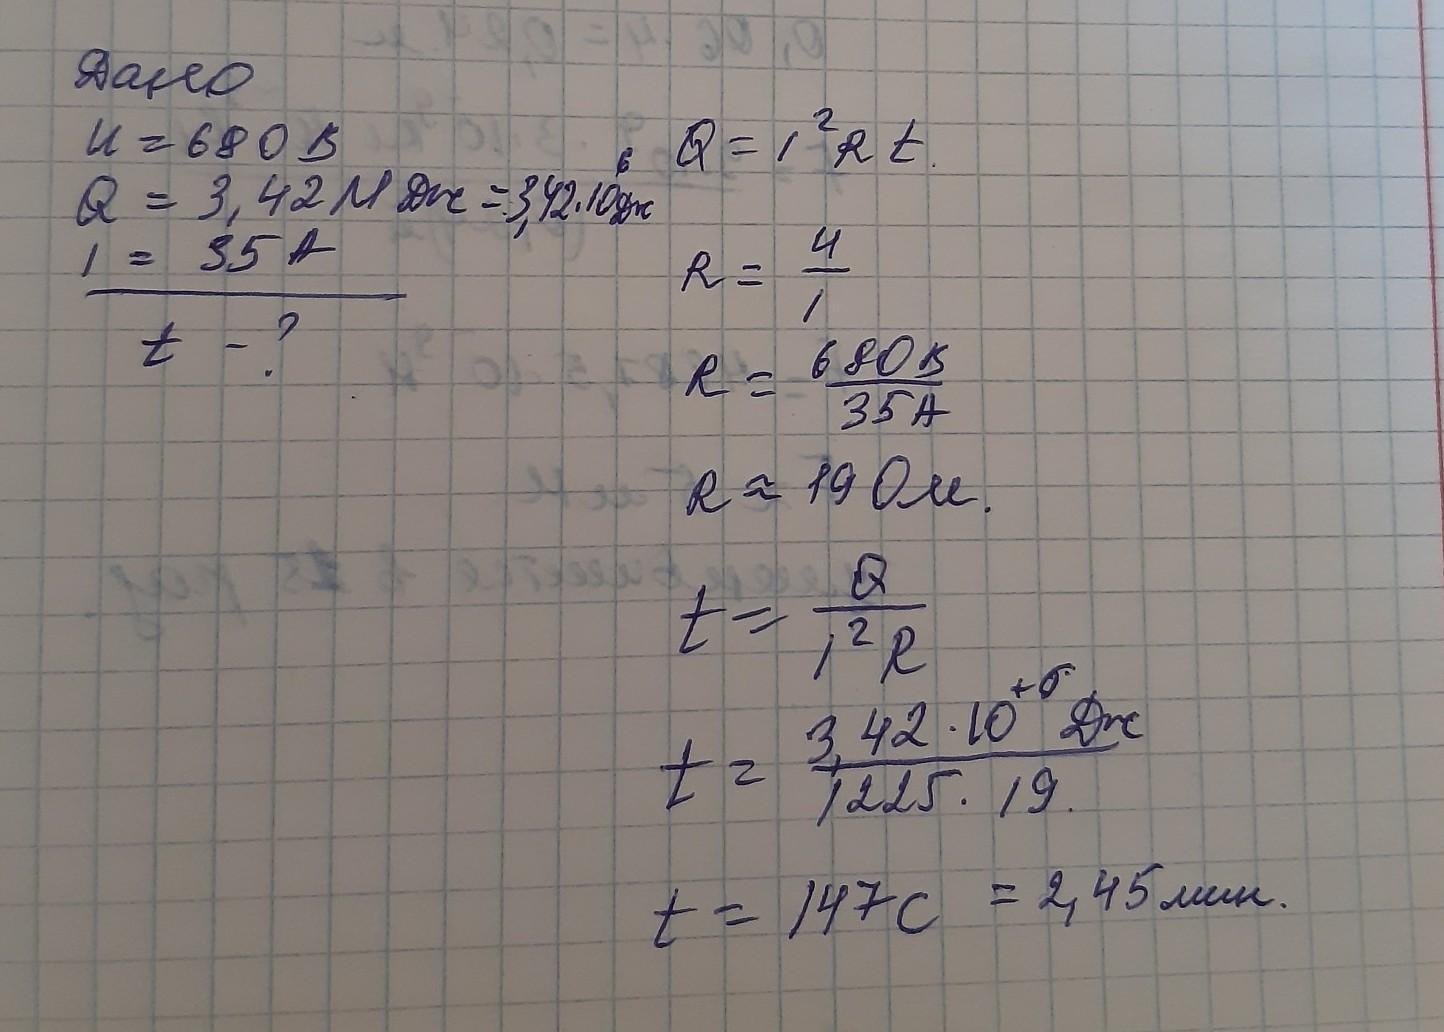 Дано
U = 680 В
Q = 3,42 М Дж = 3,42·10⁶ Дж
I = 35 А
t - ?
Q = I² R t.
R = U / I
R = 680 В / 35 А
R ≈ 19 Ом.
t = Q / I² R
t = 3,42 · 10⁺⁶ Дж / 1225 · 19.
t = 147 с = 2,45 мин.